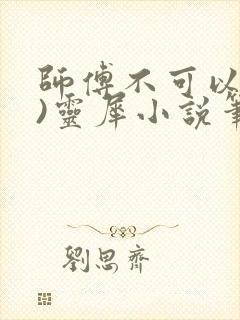 師傅不可以
)靈犀小說筆
劉思齊